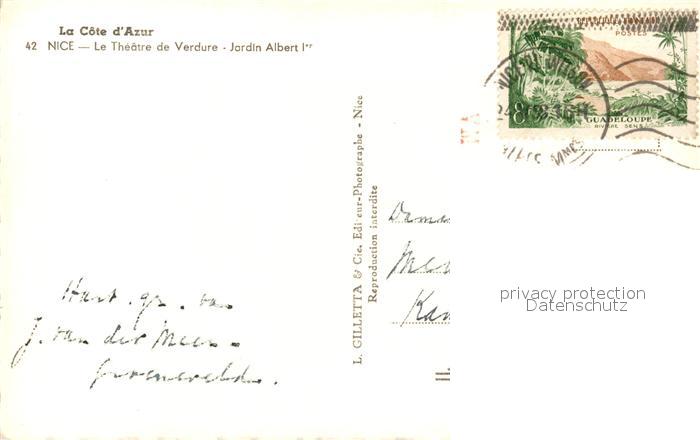 La Côte d'Azur
42 NICE — Le Théâtre de Verdure - Jardin Albert Iᵉʳ
RÉPUBLIQUE FRANÇAISE
POSTES
8F
GUADELOUPE
RIVIÈRE SENS
L. GILLETTA & Cie. Editeur-Photographe - Nice
Reproduction interdite
Hart. gr. van
J. van der Meer-
Groeneveld.
Dame
Meer
Kam
privacy protection
Datenschutz